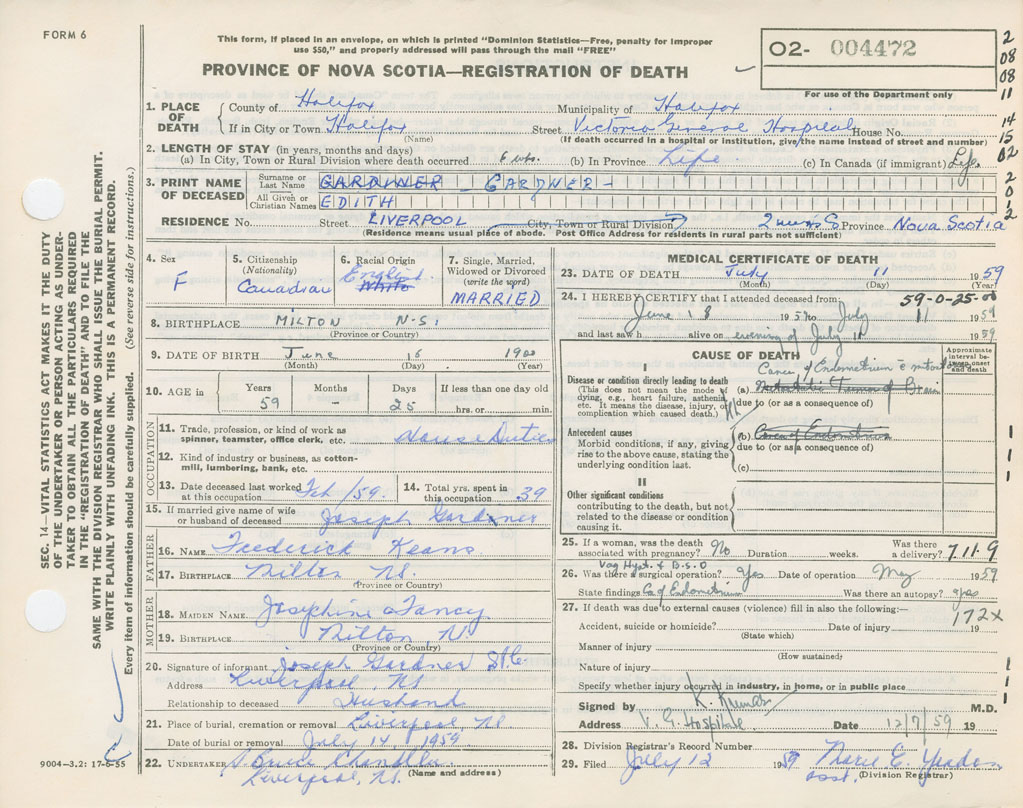 FORM 6
This form, if placed in an envelope, on which is printed "Dominion Statistics—Free, penalty for improper
use $50," and properly addressed will pass through the mail "FREE"
PROVINCE OF NOVA SCOTIA—REGISTRATION OF DEATH
02- 004472
For use of the Department only
2
08
08
11
14
15
02
2
0
1
2
SEC. 14—VITAL STATISTICS ACT MAKES IT THE DUTY
OF THE UNDERTAKER OR PERSON ACTING AS UNDER-
TAKER TO OBTAIN ALL THE PARTICULARS REQUIRED
IN THE "REGISTRATION OF DEATH" AND TO FILE THE
SAME WITH THE DIVISION REGISTRAR WHO SHALL ISSUE THE BURIAL PERMIT.
WRITE PLAINLY WITH UNFADING INK. THIS IS A PERMANENT RECORD.
Every item of information should be carefully supplied. (See reverse side for instructions.)
1. PLACE OF DEATH
County of Halifax Municipality of Halifax
If in City or Town Halifax Street Victoria General Hospital House No.
(Name) (If death occurred in a hospital or institution, give the name instead of street and number)
2. LENGTH OF STAY (in years, months and days)
(a) In City, Town or Rural Division where death occurred 6 wks. (b) In Province Life (c) In Canada (if immigrant) Life
3. PRINT NAME OF DECEASED
Surname or Last Name GARDINER GARDNER-
All Given or Christian Names EDITH
RESIDENCE No. Street LIVERPOOL City, Town or Rural Division Queens Province Nova Scotia
(Residence means usual place of abode. Post Office Address for residents in rural parts not sufficient)
4. Sex
F
5. Citizenship
(Nationality)
Canadian
6. Racial Origin
English
White
7. Single, Married,
Widowed or Divorced
(write the word)
MARRIED
8. BIRTHPLACE MILTON N.S.
(Province or Country)
9. DATE OF BIRTH June 16 1900
(Month) (Day) (Year)
10. AGE in
Years Months Days If less than one day old
59 25 hrs. or min.
OCCUPATION
11. Trade, profession, or kind of work as
spinner, teamster, office clerk, etc. House Duties
12. Kind of industry or business, as cotton-
mill, lumbering, bank, etc.
13. Date deceased last worked at this occupation Feb /59. 14. Total yrs. spent in this occupation 39
15. If married give name of wife
or husband of deceased Joseph Gardner
FATHER
16. NAME Frederick Keans
17. BIRTHPLACE Milton N.S.
(Province or Country)
MOTHER
18. MAIDEN NAME Josephine Fancy
19. BIRTHPLACE Milton, N
(Province or Country)
20. Signature of informant Joseph Gardner
Address Liverpool NS
Relationship to deceased Husband
21. Place of burial, cremation or removal Liverpool, NS
Date of burial or removal July 14, 1959
22. UNDERTAKER Chandler
Liverpool, N.S.
(Name and address)
9004-3.2: 17-6-55
MEDICAL CERTIFICATE OF DEATH
23. DATE OF DEATH July 11 1959
(Month) (Day) (Year)
24. I HEREBY CERTIFY that I attended deceased from: 59-0-25-00
June 18 1959 to July 11 1959
and last saw h alive on evening of July 11 1959
CAUSE OF DEATH
Approximate
interval be-
tween onset
and death
I
Disease or condition directly leading to death
(This does not mean the mode of
dying, e.g., heart failure, asthenia,
etc. It means the disease, injury, or
complication which caused death.)
Cancer of Endometrium
(a) Metastatic Tumor of Brain
due to (or as a consequence of)
Antecedent causes
Morbid conditions, if any, giving
rise to the above cause, stating the
underlying condition last.
(b) Cancer of Endometrium
due to (or as a consequence of)
(c)
II
Other significant conditions
contributing to the death, but not
related to the disease or condition
causing it.
25. If a woman, was the death
associated with pregnancy? No Duration weeks. Was there
a delivery?
7.11.9
Vag Hyst. & B.S.O
26. Was there a surgical operation? Yes Date of operation May 1959
State findings Ca of Endometrium Was there an autopsy? yes
27. If death was due to external causes (violence) fill in also the following:—
172X
Accident, suicide or homicide? Date of injury 19
(State which)
Manner of injury
(How sustained)
Nature of injury
Specify whether injury occurred in industry, in home, or in public place
Signed by M.D.
Address V. G. Hospital Date 12/7/59 19
28. Division Registrar's Record Number
29. Filed July 12 1959 Marie E.
asst. (Division Registrar)